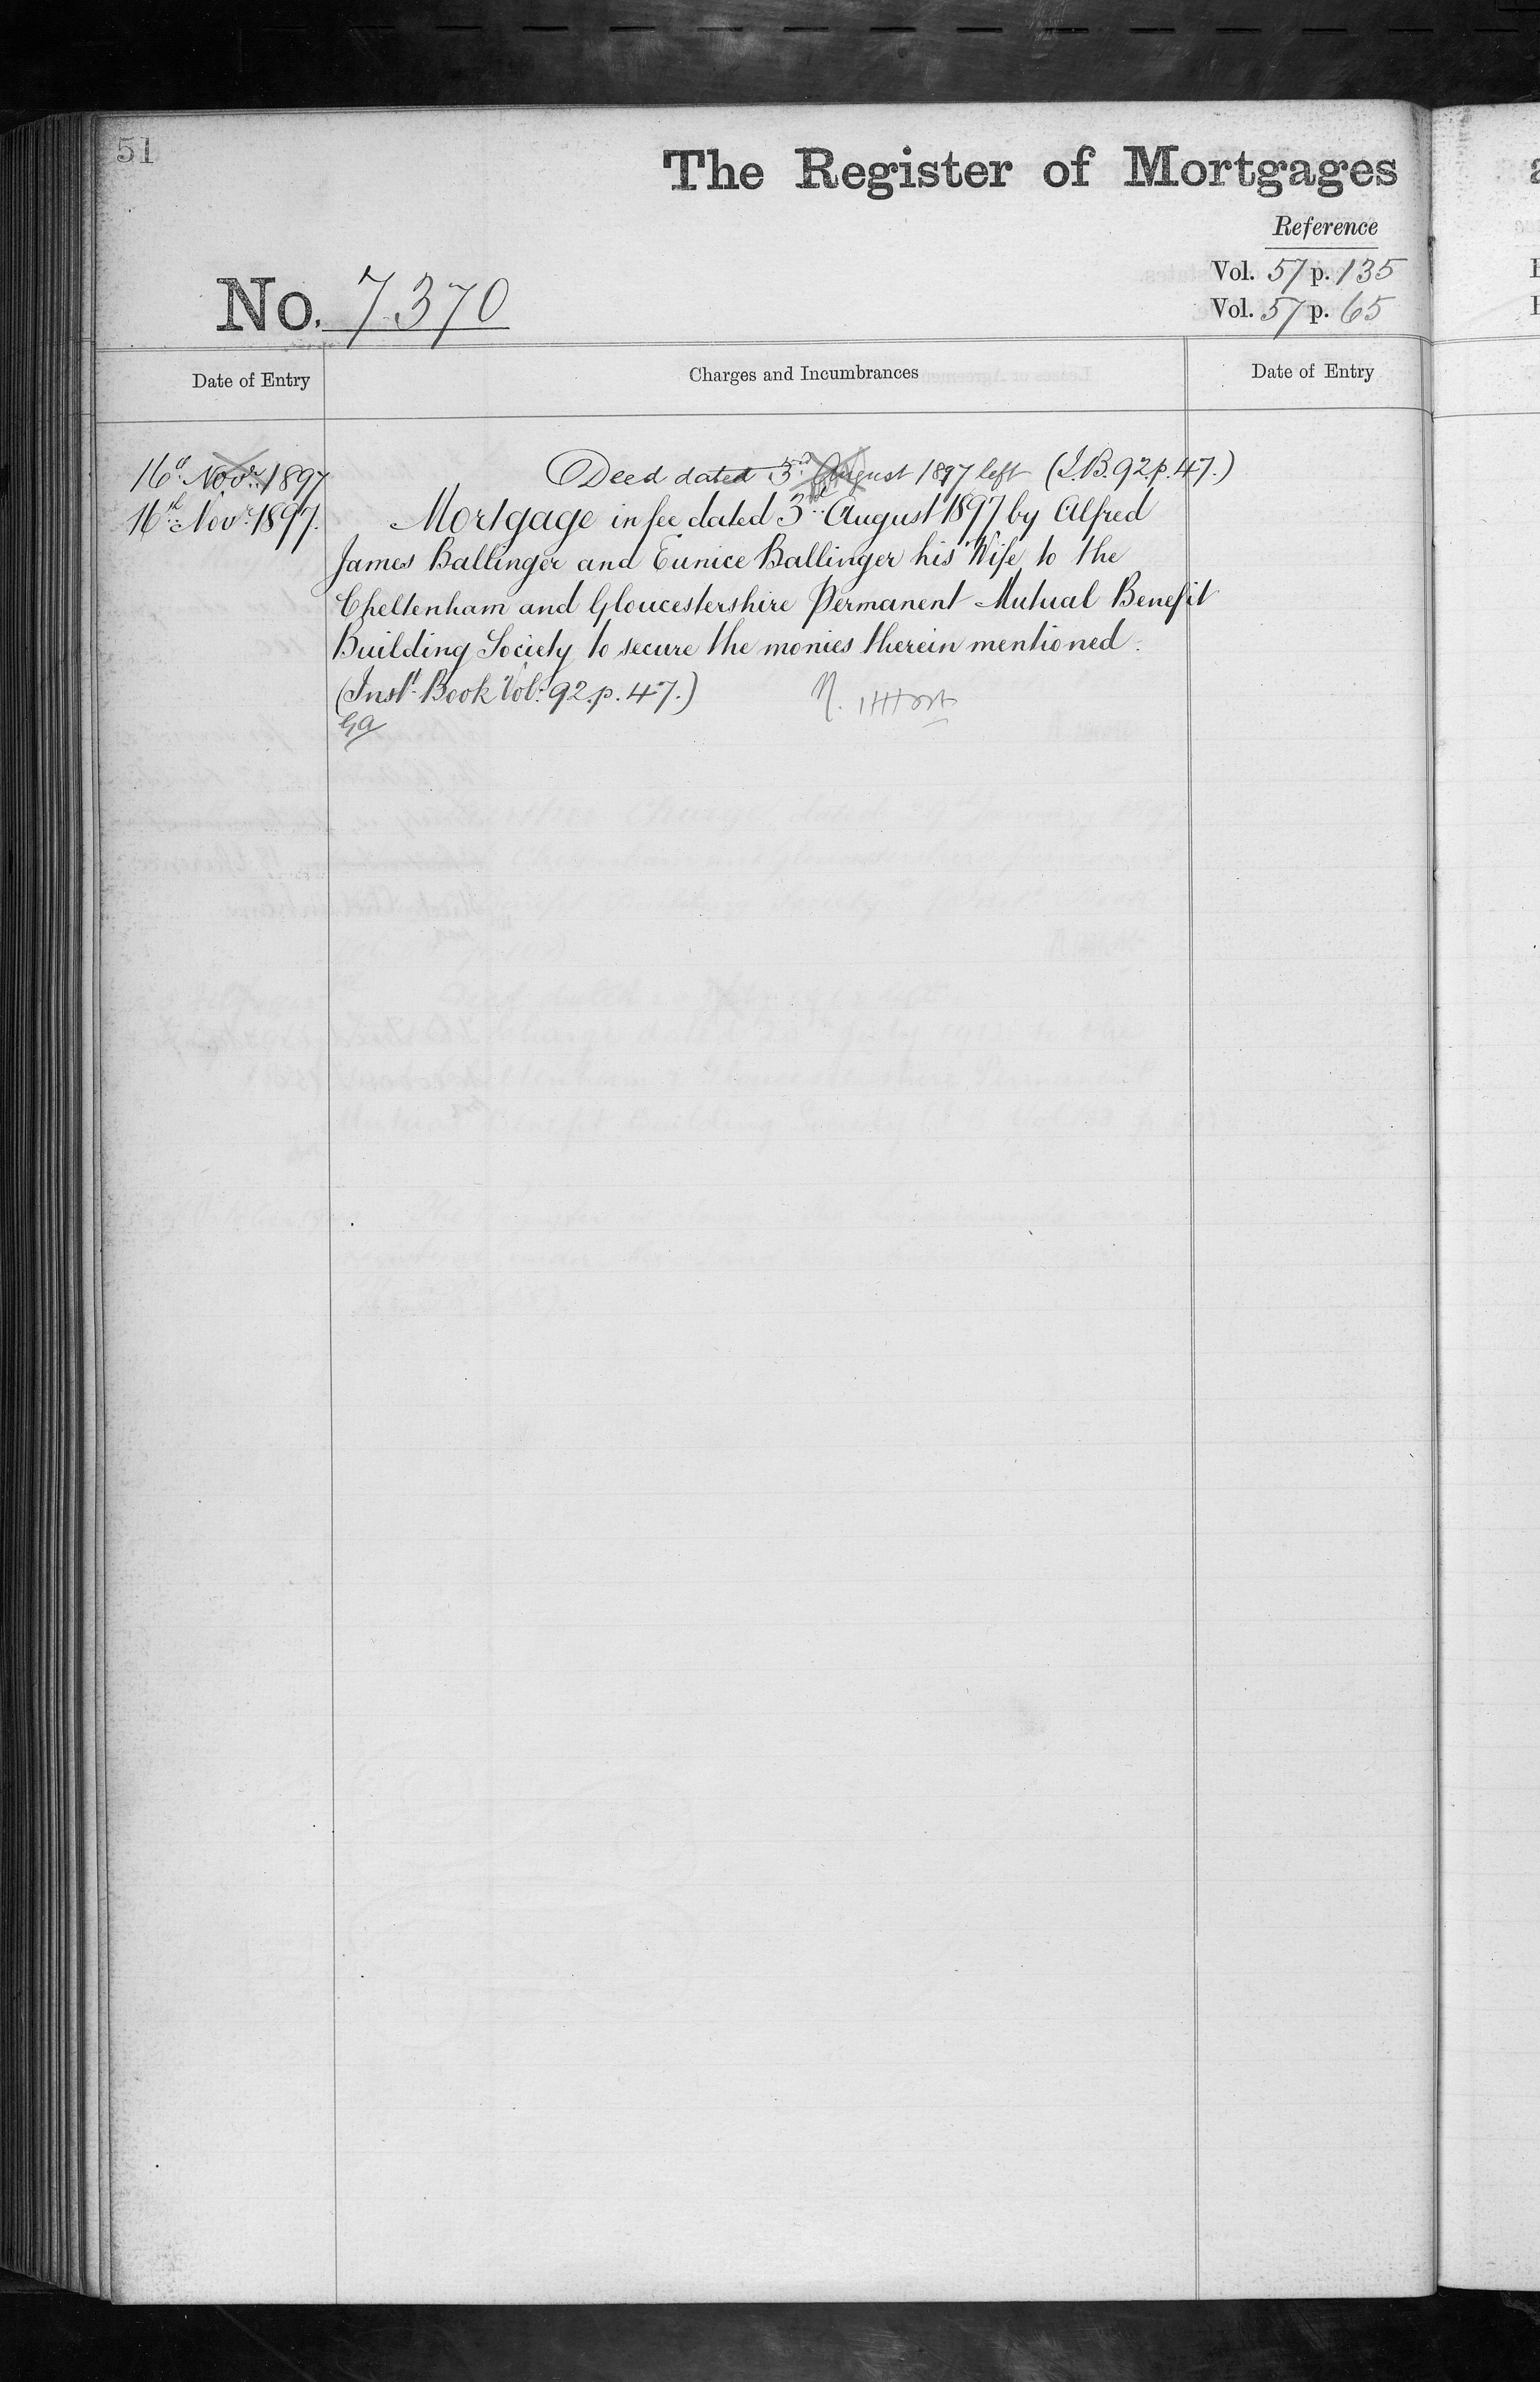 51
The Register of Mortgages
Reference
Vol. 57 p. 135
No. 7370
Vol. 57 p. 65
Date of Entry
Charges and Incumbrances
Date of Entry
16th Novr. 1897
Deed dated 3rd August 1897 left (I.B. 92. p. 47.)
16th Novr. 1897.
Mortgage in fee dated 3rd August 1897 by Alfred
James Ballinger and Eunice Ballinger his Wife to the
Cheltenham and Gloucestershire Permanent Mutual Benefit
Building Society to secure the monies therein mentioned.
(Inst. Book Vol. 92. p. 47.)